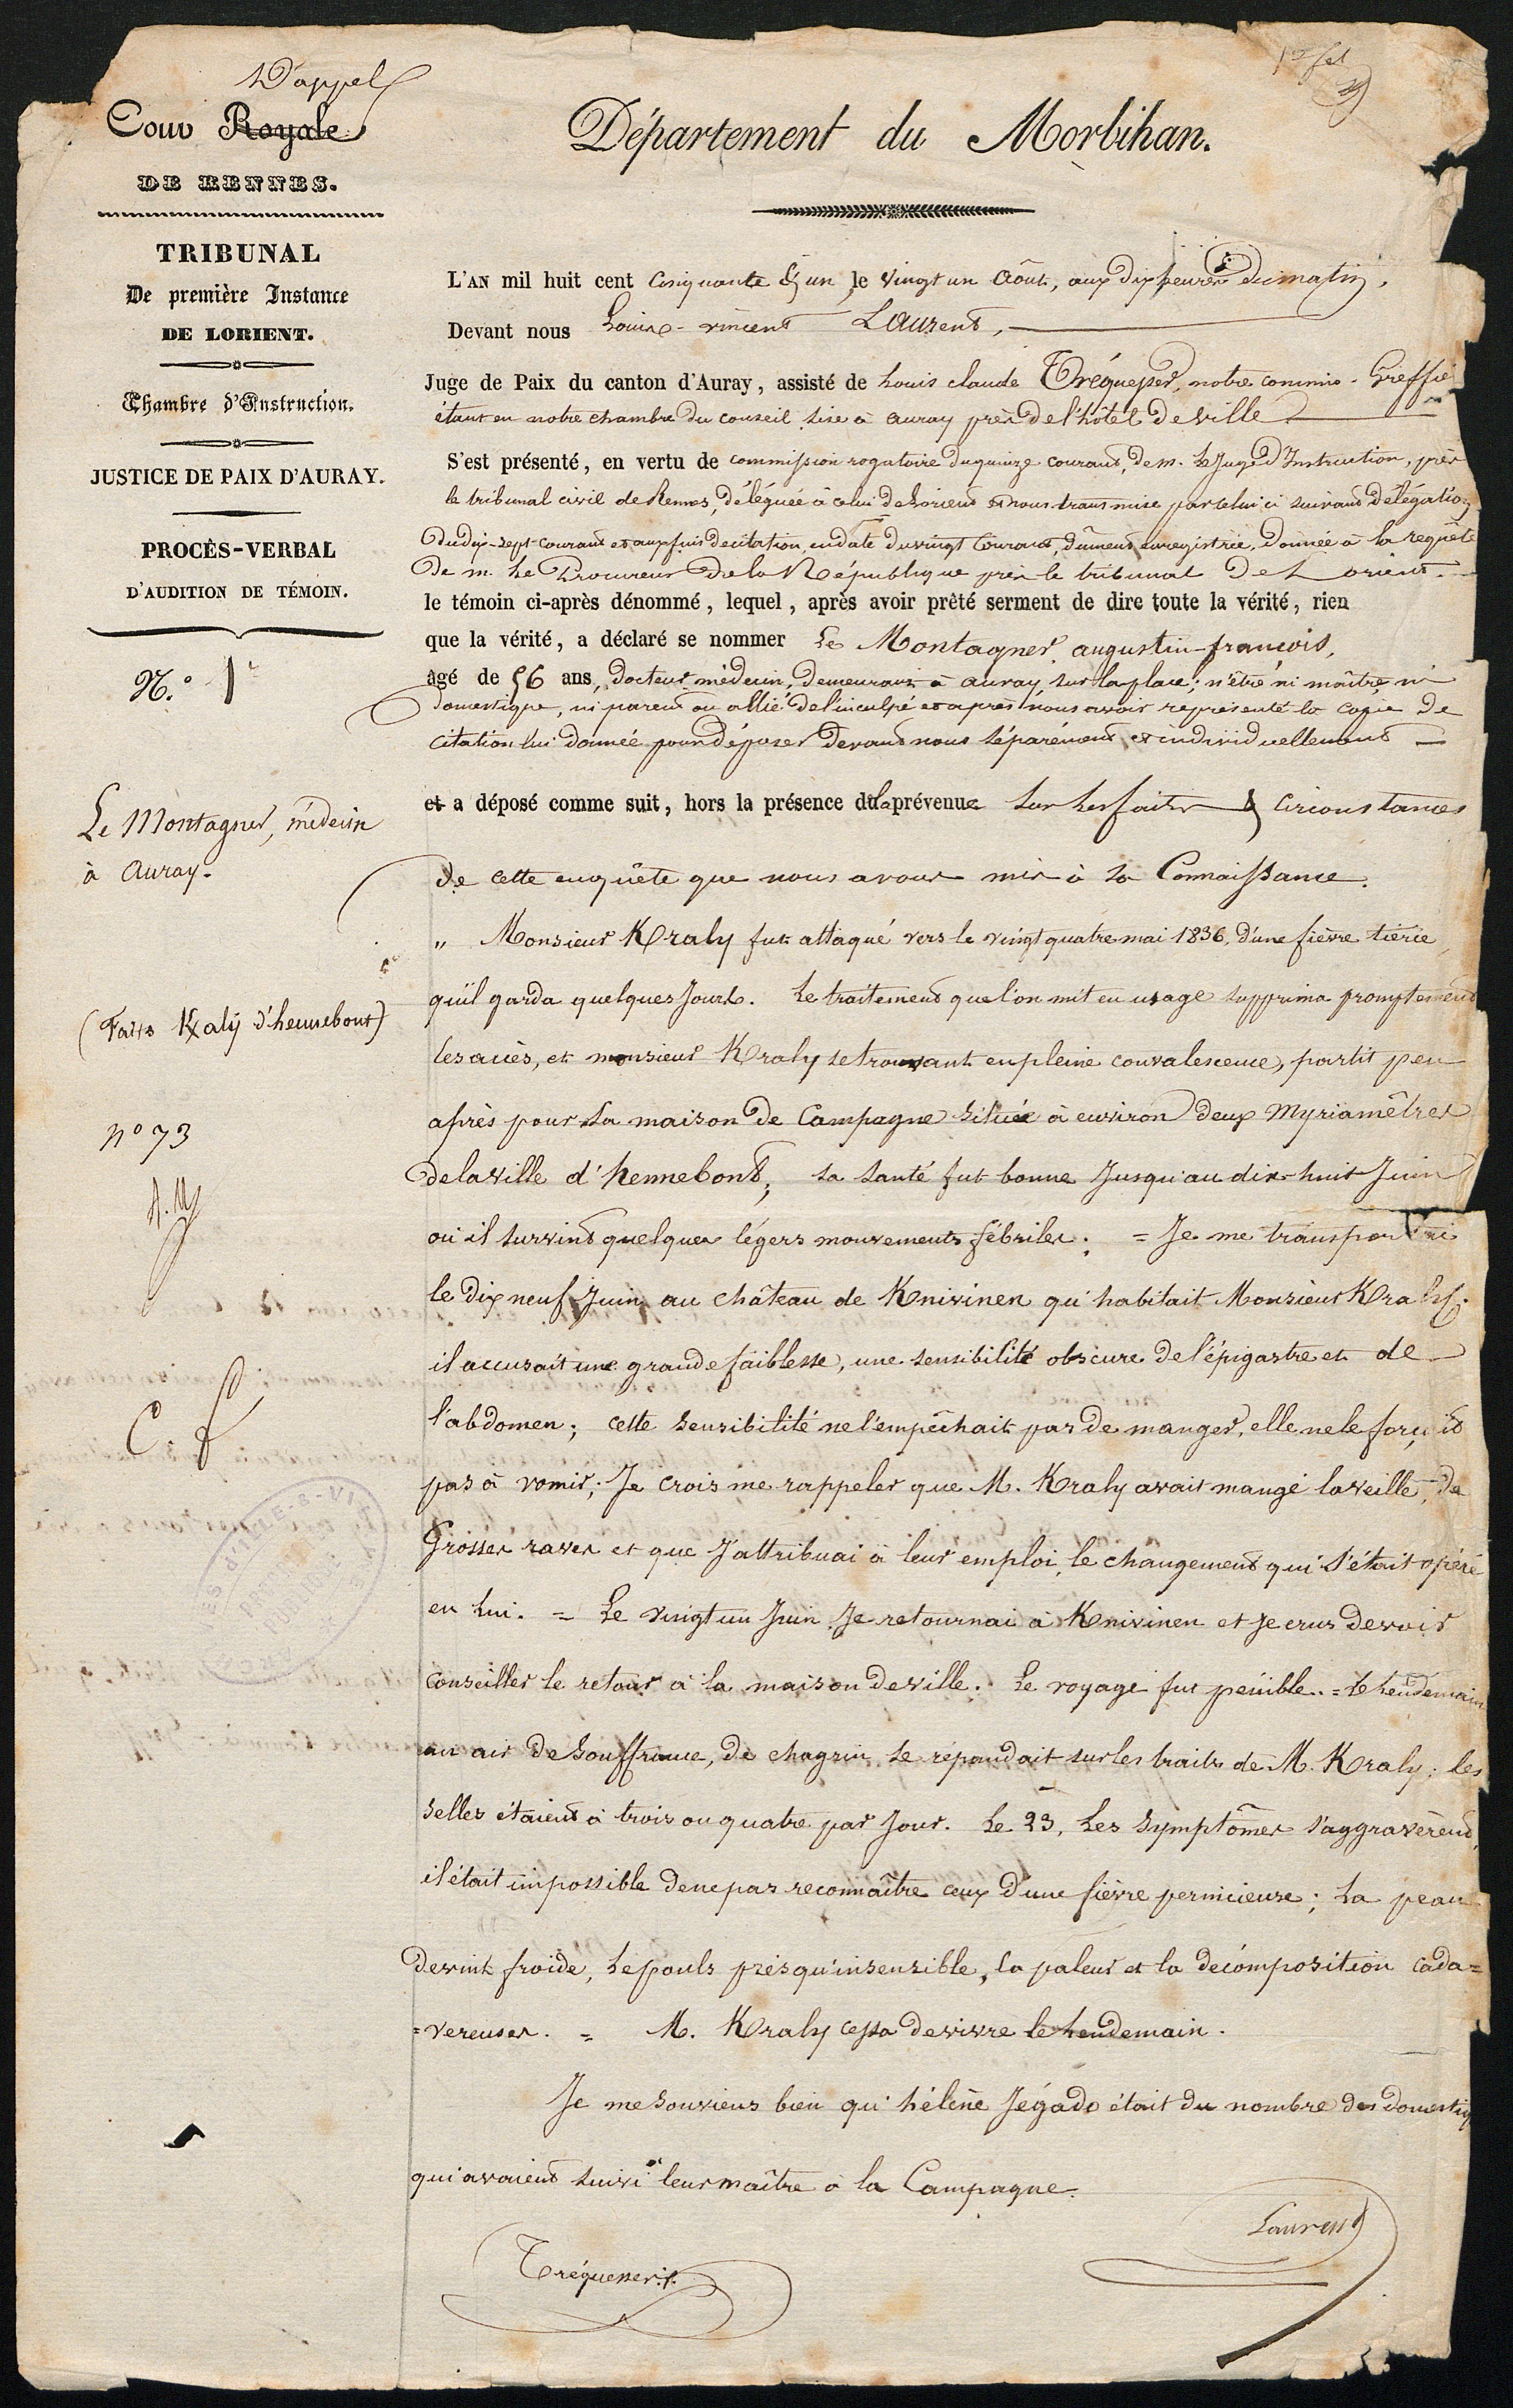 D'appel
Cour Royale
DE RENNES.
TRIBUNAL
De première Instance
DE LORIENT.
Chambre d'Instruction.
JUSTICE DE PAIX D'AURAY.
PROCÈS-VERBAL
D'AUDITION DE TÉMOIN.
N.° 1er
Le Montagner, médecin
à Auray.
(Faits Kraly d'hennebont)
n° 73
C. f
Département du Morbihan.
L'AN mil huit cent cinquante & un, le vingt un Août, aux dix heures du matin,
Devant nous Louis-vincent Laurent,
Juge de Paix du canton d'Auray, assisté de Louis claude Tréquesser, notre commis-Greffier
étant en notre chambre du conseil sise à auray près de l'hôtel de ville
S'est présenté, en vertu de commission rogatoire du quinze courant, de m. le Juge d'Instruction, près
le tribunal civil de Rennes, déléguée à celui de Lorient et nous transmise par celui ci suivant délégation
du dix-sept courant et aux fins de citation, en date du vingt courant, dûment enregistrée, donnée à la requête
de m. Le Procureur de la République près le tribunal de Lorient.
le témoin ci-après dénommé, lequel, après avoir prêté serment de dire toute la vérité, rien
que la vérité, a déclaré se nommer Le Montagner, augustin-françois,
âgé de 56 ans, docteur médecin, demeurant à auray, sur la place; n'être ni maître, ni
domestique, ni parent ou allié de l'inculpé et après nous avoir représenté la copie de
citation lui donnée pour déposer devant nous séparément et individuellement
et a déposé comme suit, hors la présence du la prévenue sur les faits & circonstances
de cette enquête que nous avons mis à sa Connaissance.
" Monsieur Kraly fut attaqué vers le vingt quatre mai 1836, d'une fièvre tierce
qu'il garda quelques Jours. Le traitement que l'on mit en usage supprima promptement
les accès, et monsieur Kraly se trouvant en pleine convalescence, partit peu
après pour sa maison de Campagne située à environ deux Myriamètres
de la ville d'hennebont; sa santé fut bonne Jusqu'au dix-huit Juin
où il survint quelques légers mouvements fébriles. = Je me transportai
le dix neuf Juin au château de Knivinen qu'habitait Monsieur Kraly;
il accusait une grande faiblesse, une sensibilité obscure de l'épigastre et de
l'abdomen; cette sensibilité ne l'empêchait pas de manger, elle ne le forçait
pas à vomir; Je crois me rappeler que M. Kraly avait mangé la veille, de
Grosses raves et que J'attribuai à leur emploi, le changement qui s'était opéré
en lui. = Le vingt un Juin Je retournai à Knivinen et Je crus devoir
conseiller le retour à la maison de ville. Le voyage fut pénible. = le lendemain
un air de souffrance, de chagrin se répandait sur les traits de M. Kraly; les
selles étaient à trois ou quatre par Jour. Le 23, les symptômes s'aggravèrent,
il était impossible de ne pas reconnaître ceux d'une fièvre pernicieuse; la peau
devint froide, le pouls presqu'insensible, la paleur et la décomposition cada=
=vereuses. = M. Kraly cessa de vivre le lendemain.
Je me souviens bien qu'hélène Jégado était du nombre des domestiq
qui avaient suivi leur maître à la Campagne.
Laurent
Tréquesser